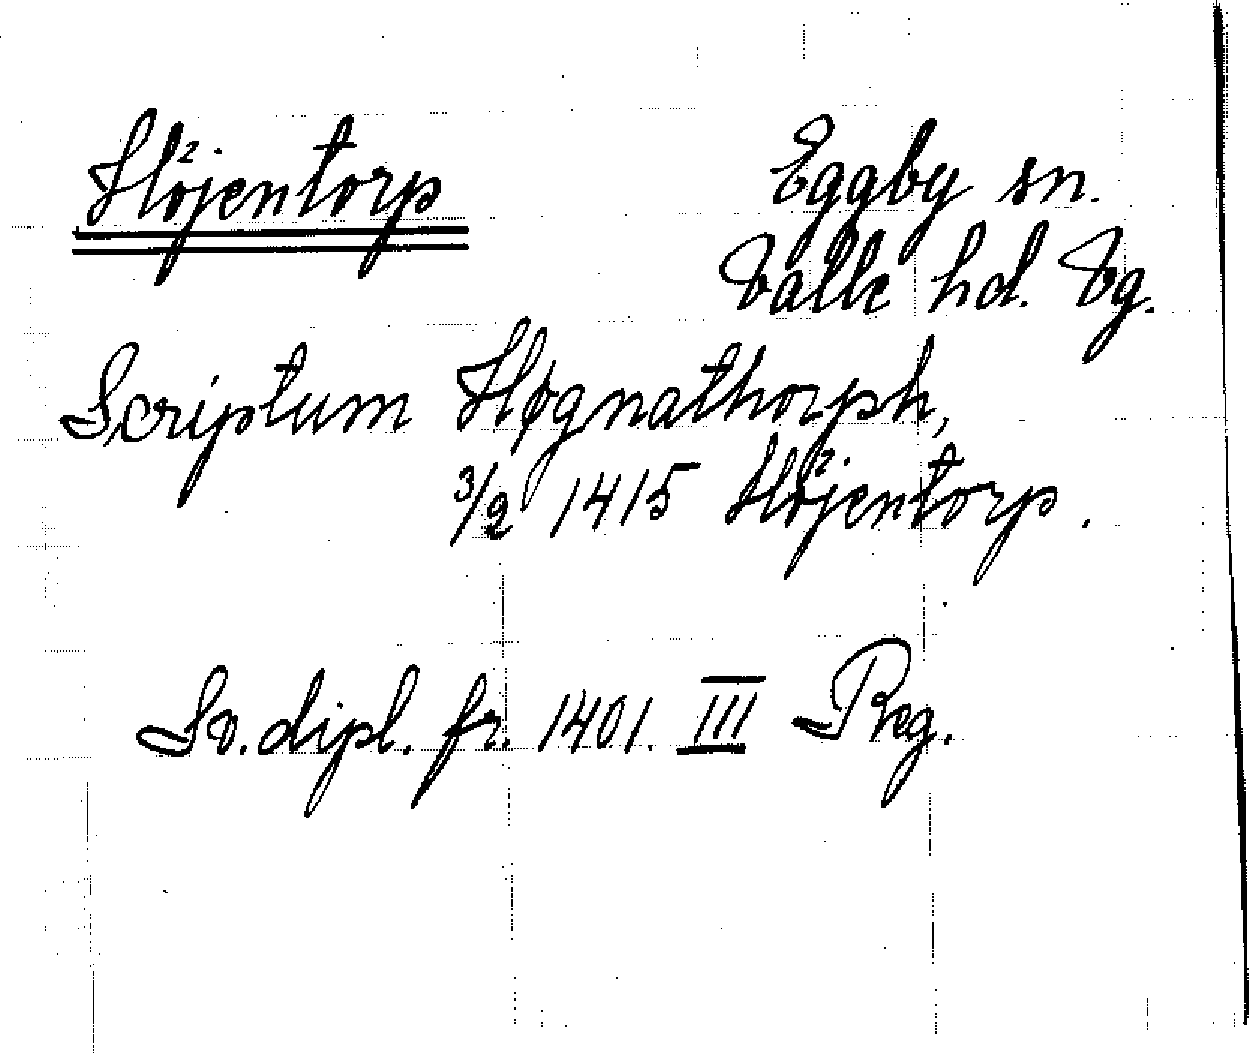 Höjentorp
Eggby sn.
Valle hd. Vg.
Scriptum Høgnathorph,
3/2 1415 Höjentorp.
Sv. dipl. fr. 1401. III Reg.